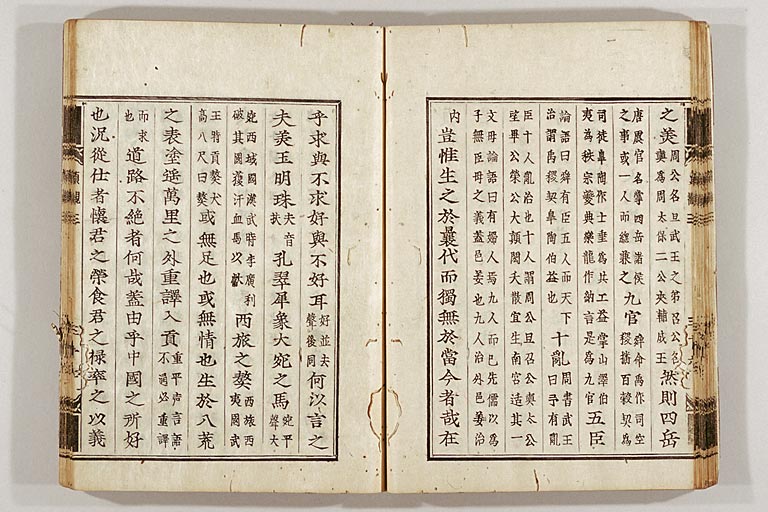 之美周公名旦武王之弟召公名奭爲周太保二公夾輔成王然則四岳
唐虞官名掌四岳諸侯之事或一人而總兼之九官舜命禹作司空稷播百穀契爲
司徒皐陶作士垂爲共工益掌山澤伯夷爲秩宗夔典樂龍作納言是爲九官五臣
論語曰舜有臣五人而天下治謂禹稷契皐陶伯益也十亂周書武王曰予有亂
臣十人亂治也十人謂周公旦召公奭太公望畢公榮公太顚閎夭散宜生南宮适其一
文母論語曰有婦人焉九人而已先儒以爲子無臣母之義蓋邑姜也九人治外邑姜治
内豈惟生之於曩代而獨無於當今者哉在
乎求與不求好與不好耳好並去聲後同何以言之
夫美玉明珠夫音扶孔翠犀象大宛之馬宛平聲大
宛西域國漢武時李廣利破其國獲汗血馬以獻西旅之獒西旅西夷周武
王時貢獒犬高八尺曰獒或無足也或無情也生於八荒
之表塗遥萬里之外重譯入貢重平聲言不通必重譯
而求也道路不絶者何哉蓋由乎中國之所好
也況從仕者懷君之榮食君之祿率之以義